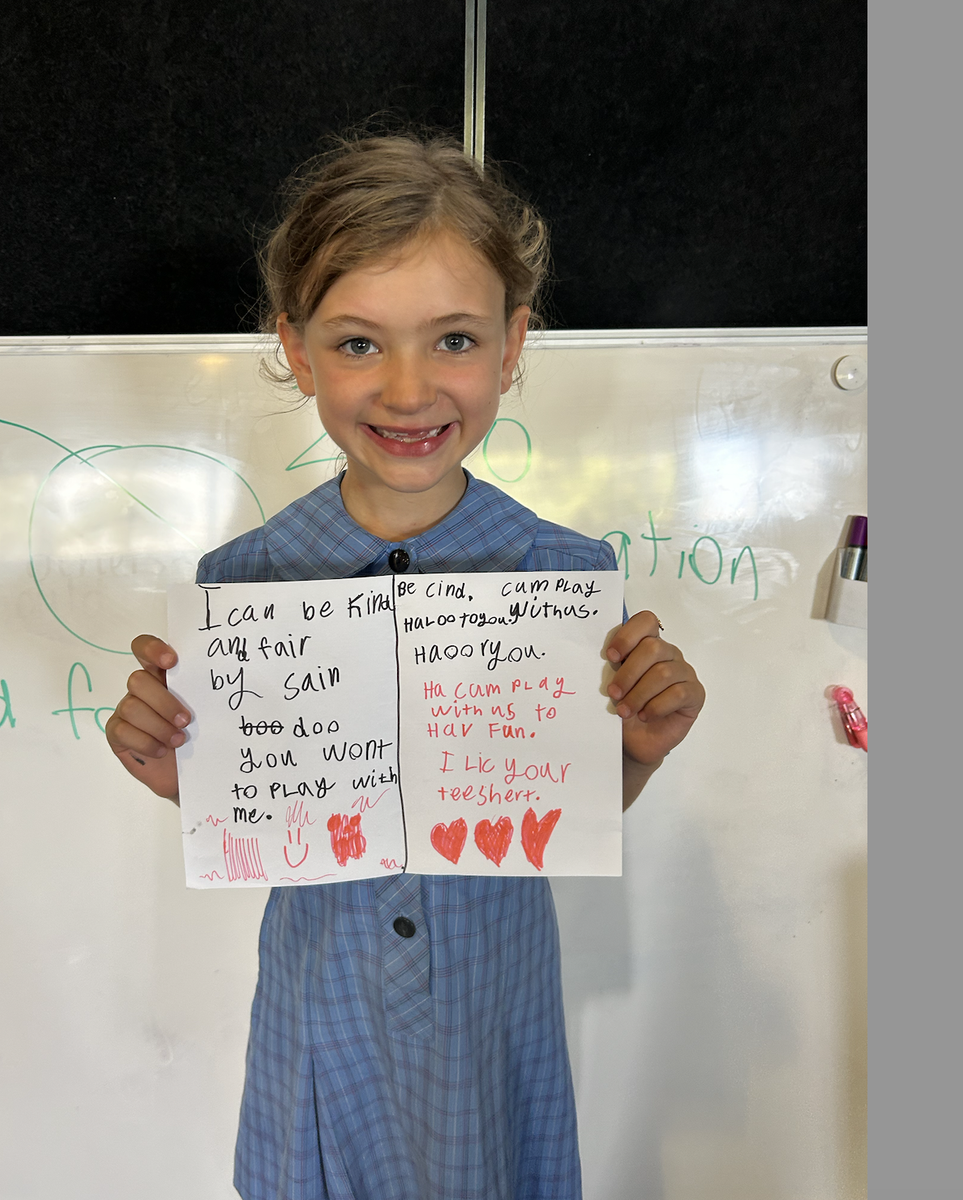 I can be kind
and fair
by sain
boo doo
you wont
to play with
me.
Be cind. cam play
Haloo to you. With us.
Haoo r you.
Ha cam play
with us to
Hav Fun.
I Lic your
teeshert.
ation